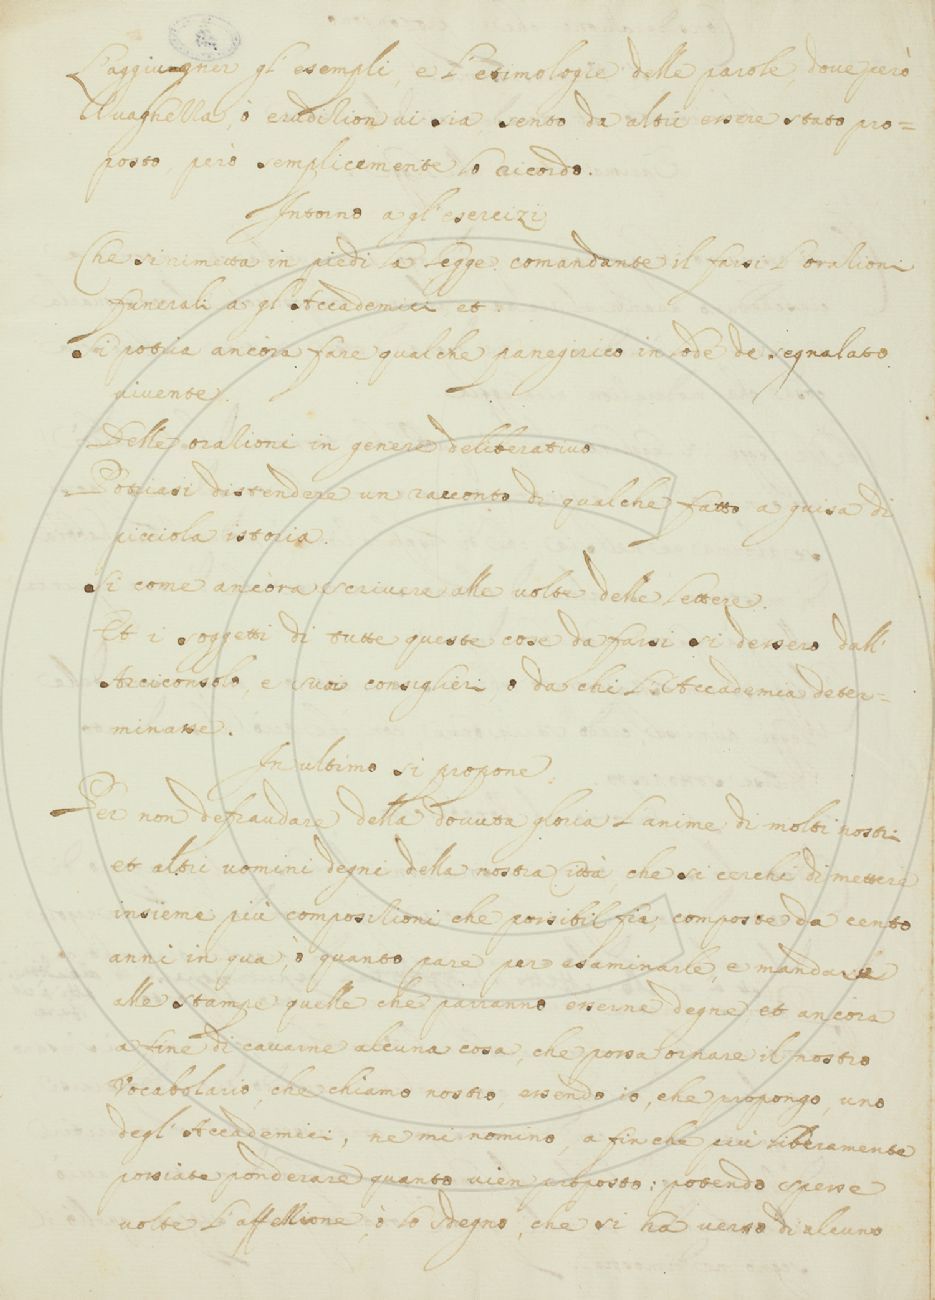 L'aggiugner gl'esempli, e l'etimologie delle parole, dove però
vaghezza, ò erudition vi sia, sento da altri essere stato pro=
posto, però semplicemente lo ricordo.
Intorno a gl'esercizi
Che si rimetta in piedi la legge comandante il farsi l'orationi
funerali a gl'Accademici et
Si potria ancora fare qualche panegirico in lode de segnalato
vivente.
Delle orationi in genere deliberativo
Potriasi distendere un racconto di qualche fatto a guisa di
picciola istoria.
Si come ancora scrivere alle volte delle lettere.
Et i soggetti di tutte queste cose da farsi si dessero dall'
Arciconsolo, e suoi consiglieri, o da chi l'Accademia deter=
minasse.
In ultimo si propone.
Per non defraudare della dovuta gloria l'anime di molti nostri
et altri uomini degni della nostra Città, che si cerchi di mettere
insieme più compositioni che possibil fia, composte da cento
anni in qua, ò quanto pare per esaminarle, e mandarle
alle stampe quelle che parranno esserne degne, et ancora
a fine di cavarne alcuna cosa, che possa ornare il nostro
Vocabolario, che chiamo nostro, essendo io, che propongo, uno
degl'Accademici, ne mi nomino, a fin che più liberamente
possiate ponderare quanto vien proposto: potendo spesse
volte l'affettione, ò lo sdegno, che si ha verso di alcuno